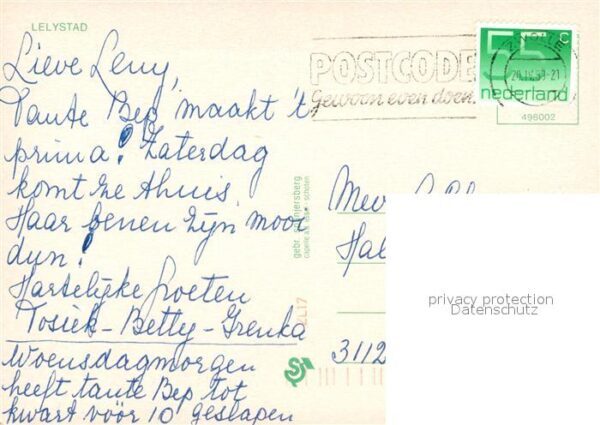 LELYSTAD
Lieve Leny,
Tante Bep maakt 't
prima! Zaterdag
komt ze thuis.
Haar benen zijn mooi
dun!
Hartelijke groeten
Tosiek-Betty-Grenka
Woensdagmorgen
heeft tante Bep tot
kwart vóór 10 geslapen
POSTCODE
Gewoon even doen.
55 c
nederland
498002
gebr. spanjersberg
Mev
Hal
3112
privacy protection
Datenschutz